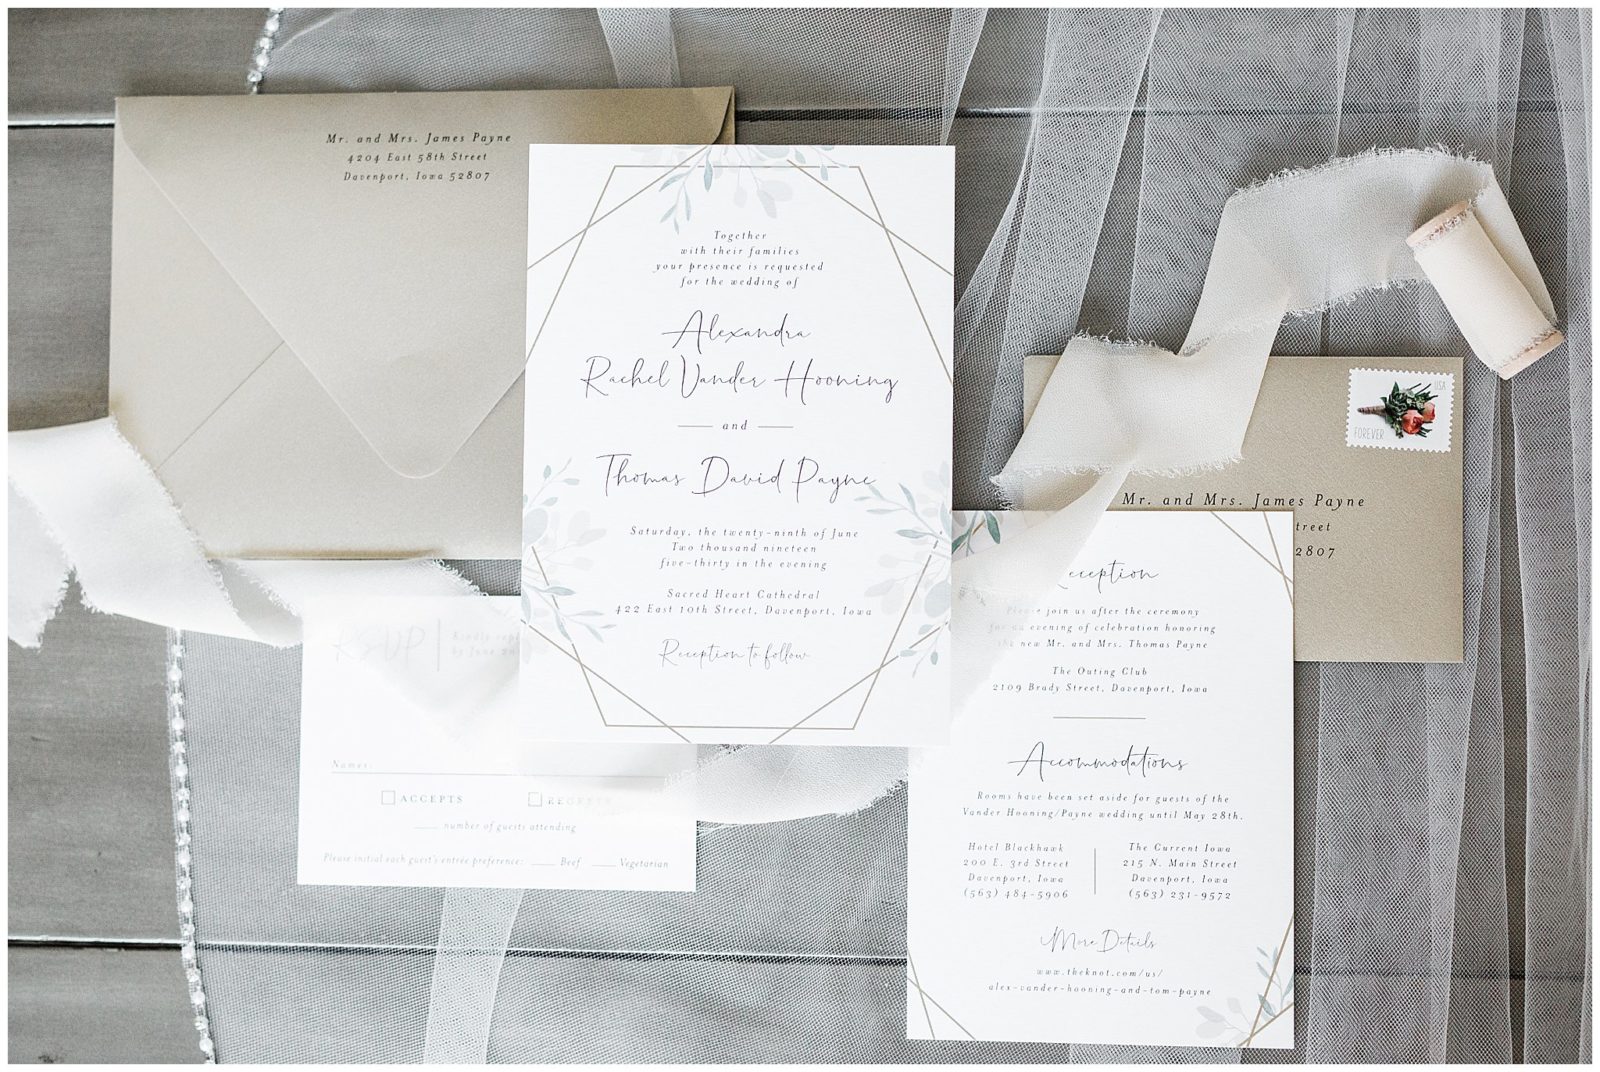 Mr. and Mrs. James Payne
4204 East 58th Street
Davenport, Iowa 52807
Together
with their families
your presence is requested
for the wedding of
Alexandra
Rachel Vander Hooning
and
Thomas David Payne
Saturday, the twenty-ninth of June
Two thousand nineteen
five-thirty in the evening
Sacred Heart Cathedral
422 East 10th Street, Davenport, Iowa
Reception to follow
USA
FOREVER
Mr. and Mrs. James Payne
RSVP
Kindly
by June
Names:
ACCEPTS
REGRETS
number of guests attending
Please initial each guest's entrée preference: Beef Vegetarian
Reception
Please join us after the ceremony
for an evening of celebration honoring
the new Mr. and Mrs. Thomas Payne
The Outing Club
2109 Brady Street, Davenport, Iowa
Accommodations
Rooms have been set aside for guests of the
Vander Hooning/Payne wedding until May 28th.
Hotel Blackhawk
200 E. 3rd Street
Davenport, Iowa
(563) 484-5906
The Current Iowa
215 N. Main Street
Davenport, Iowa
(563) 231-9572
More Details
www.theknot.com/us/
alex-vander-hooning-and-tom-payne